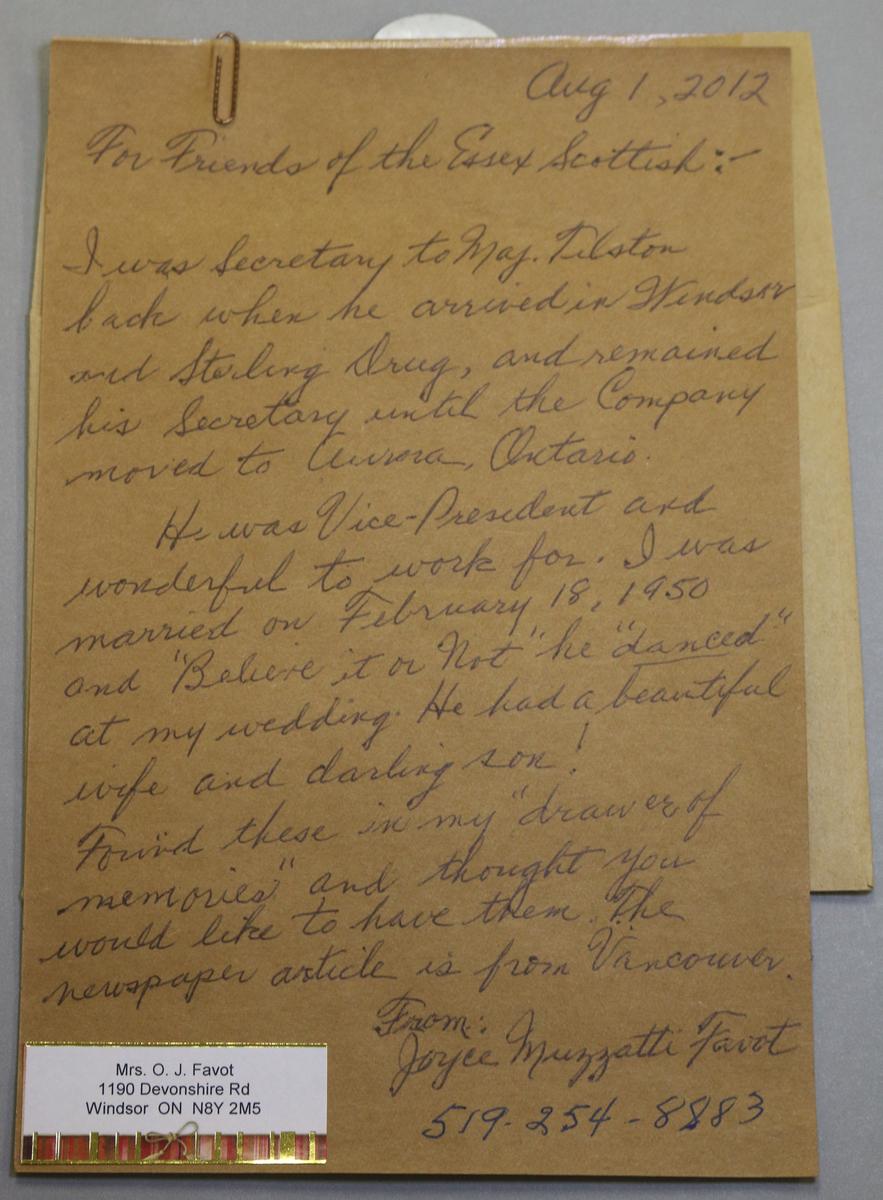 Aug 1, 2012
For Friends of the Essex Scottish:-
I was Secretary to Maj. Tilston
back when he arrived in Windsor
and Sterling Drug, and remained
his Secretary until the Company
moved to Aurora, Ontario.
He was Vice-President and
wonderful to work for. I was
married on February 18, 1950
and "Believe it or Not" he "danced"
at my wedding. He had a beautiful
wife and darling son!
Found these in my "drawer of
memories" and thought you
would like to have them. The
newspaper article is from Vancouver.
From:
Joyce Muzzatti Favot
519-254-8883
Mrs. O. J. Favot
1190 Devonshire Rd
Windsor ON N8Y 2M5